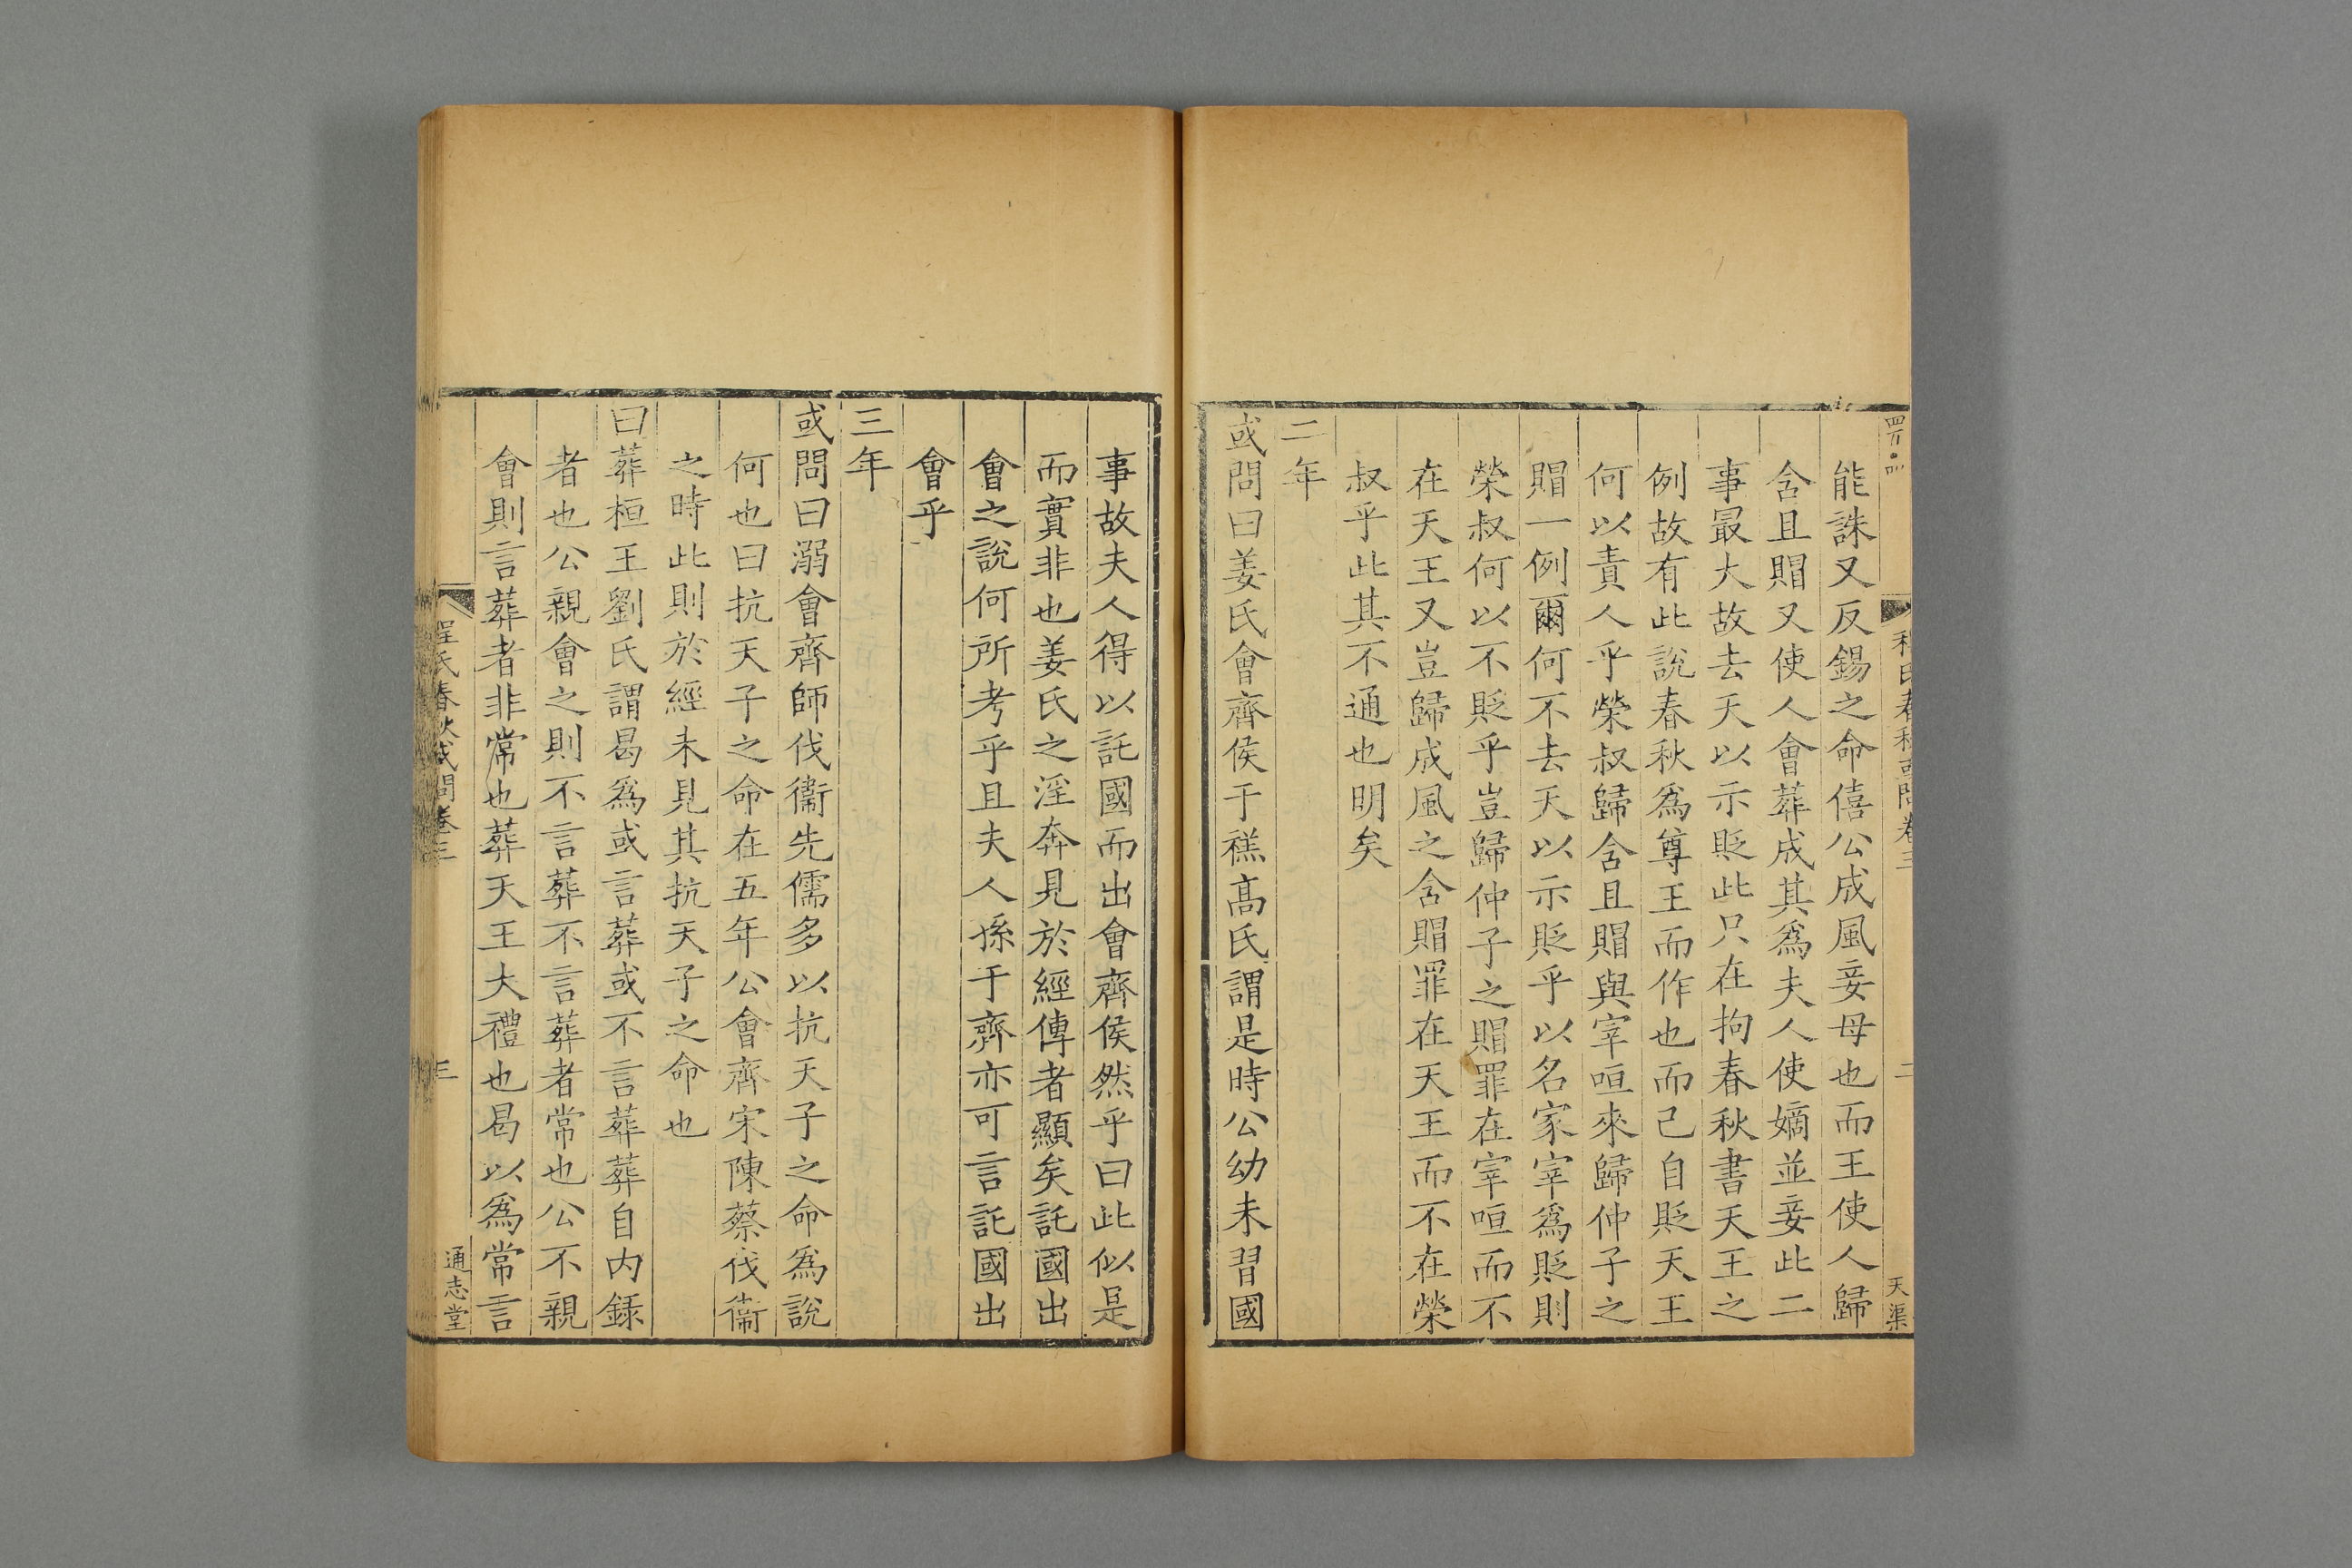 程氏春秋或問卷三
二
天渠
能誅又反錫之命僖公成風妾母也而王使人歸
含且賵又使人會葬成其爲夫人使嫡並妾此二
事最大故去天以示貶此只在拘春秋書天王之
例故有此說春秋爲尊王而作也而己自貶天王
何以責人乎榮叔歸含且賵與宰咺來歸仲子之
賵一例爾何不去天以示貶乎以名冢宰爲貶則
榮叔何以不貶乎豈歸仲子之賵罪在宰咺而不
在天王又豈歸成風之含賵罪在天王而不在榮
叔乎此其不通也明矣
二年
或問曰姜氏會齊侯于禚髙氏謂是時公幼未習國
事故夫人得以託國而出會齊侯然乎曰此似是
而實非也姜氏之淫奔見於經傳者顯矣託國出
會之說何所考乎且夫人孫于齊亦可言託國出
會乎
三年
或問曰溺會齊師伐衞先儒多以抗天子之命爲說
何也曰抗天子之命在五年公會齊宋陳蔡伐衞
之時此則於經未見其抗天子之命也
曰葬桓王劉氏謂曷爲或言葬或不言葬葬自内録
者也公親會之則不言葬不言葬者常也公不親
會則言葬者非常也葬天王大禮也曷以爲常言
程氏春秋或問卷三
三
通志堂